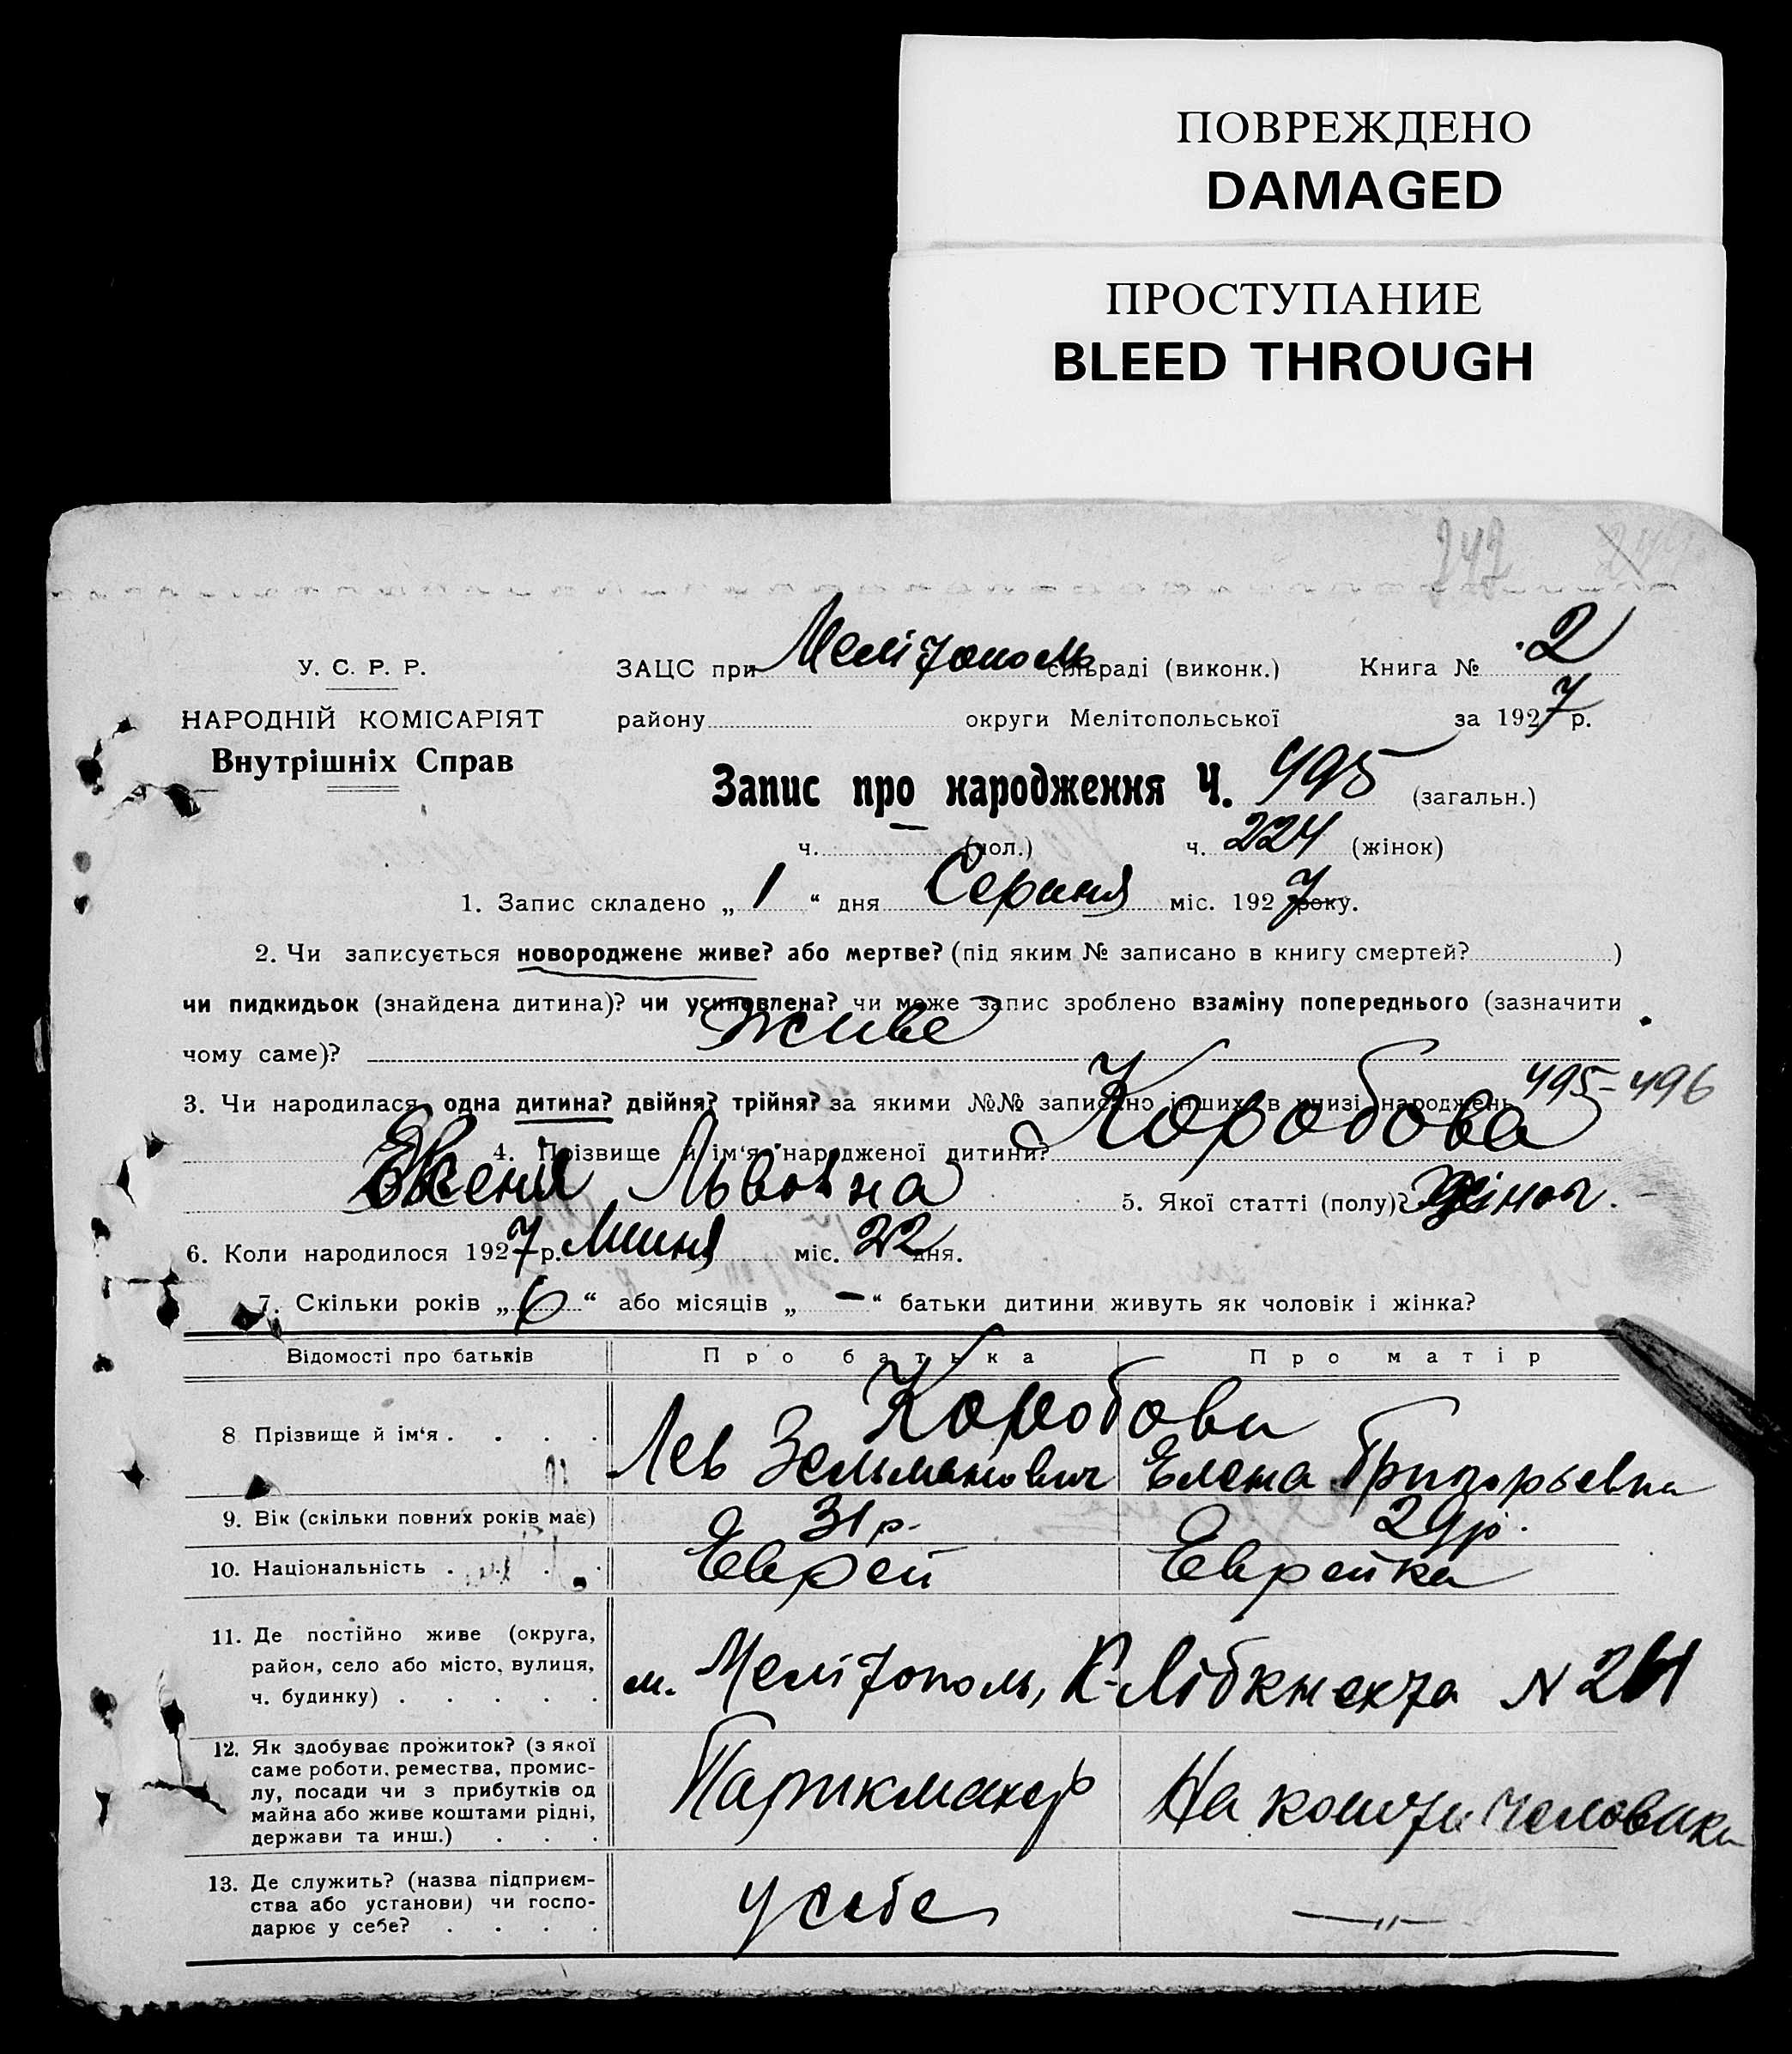 ПОВРЕЖДЕНО
DAMAGED
ПРОСТУПАНИЕ
BLEED THROUGH
242
У. С. Р. Р.
НАРОДНІЙ КОМІСАРІЯТ
Внутрішніх Справ
ЗАЦС при Мелітополь сільраді (виконк.) Книга № 2
району округи Мелітопольської за 1927 р.
Запис про народження Ч. 495 (загальн.)
ч. — (чол.) ч. 224 (жінок)
1. Запис складено „ 1 “ дня Серпня міс. 1927 року.
2. Чи записується новороджене живе? або мертве? (під яким № записано в книгу смертей? )
чи пидкидьок (знайдена дитина)? чи усиновлена? чи може запис зроблено взаміну попереднього (зазначити
чому саме)? живе
3. Чи народилася одна дитина? двійня? трійня? за якими №№ записано інших в книзі народжень 495-496
4. Прізвище й ім‘я народженої дитини? Коробова
Женя Львовна 5. Якої статті (полу)? жіноч.
6. Коли народилося 1927 р. Липня міс. 22 дня.
7. Скільки років „ 6 “ або місяців „ — “ батьки дитини живуть як чоловік і жінка?
Відомості про батьків Про батька Про матір
8 Прізвище й ім‘я . . . . Коробови
Лев Зельманович Елена Григорьевна
9. Вік (скільки повних років має) 31 р. 29 р.
10. Національність . . . . Еврей Еврейка
11. Де постійно живе (округа,
район, село або місто, вулиця,
ч. будинку) . . . . .
м. Мелітополь, К-Лібкнехта N
12. Як здобуває прожиток? (з якої
саме роботи, ремества, промис-
лу, посади чи з прибутків од
майна або живе коштами рідні,
держави та инш.) . . .
Парикмахер На кошти человика
13. Де служить? (назва підприєм-
ства або установи) чи госпо-
дарює у себе? . . . .
у себе —„—